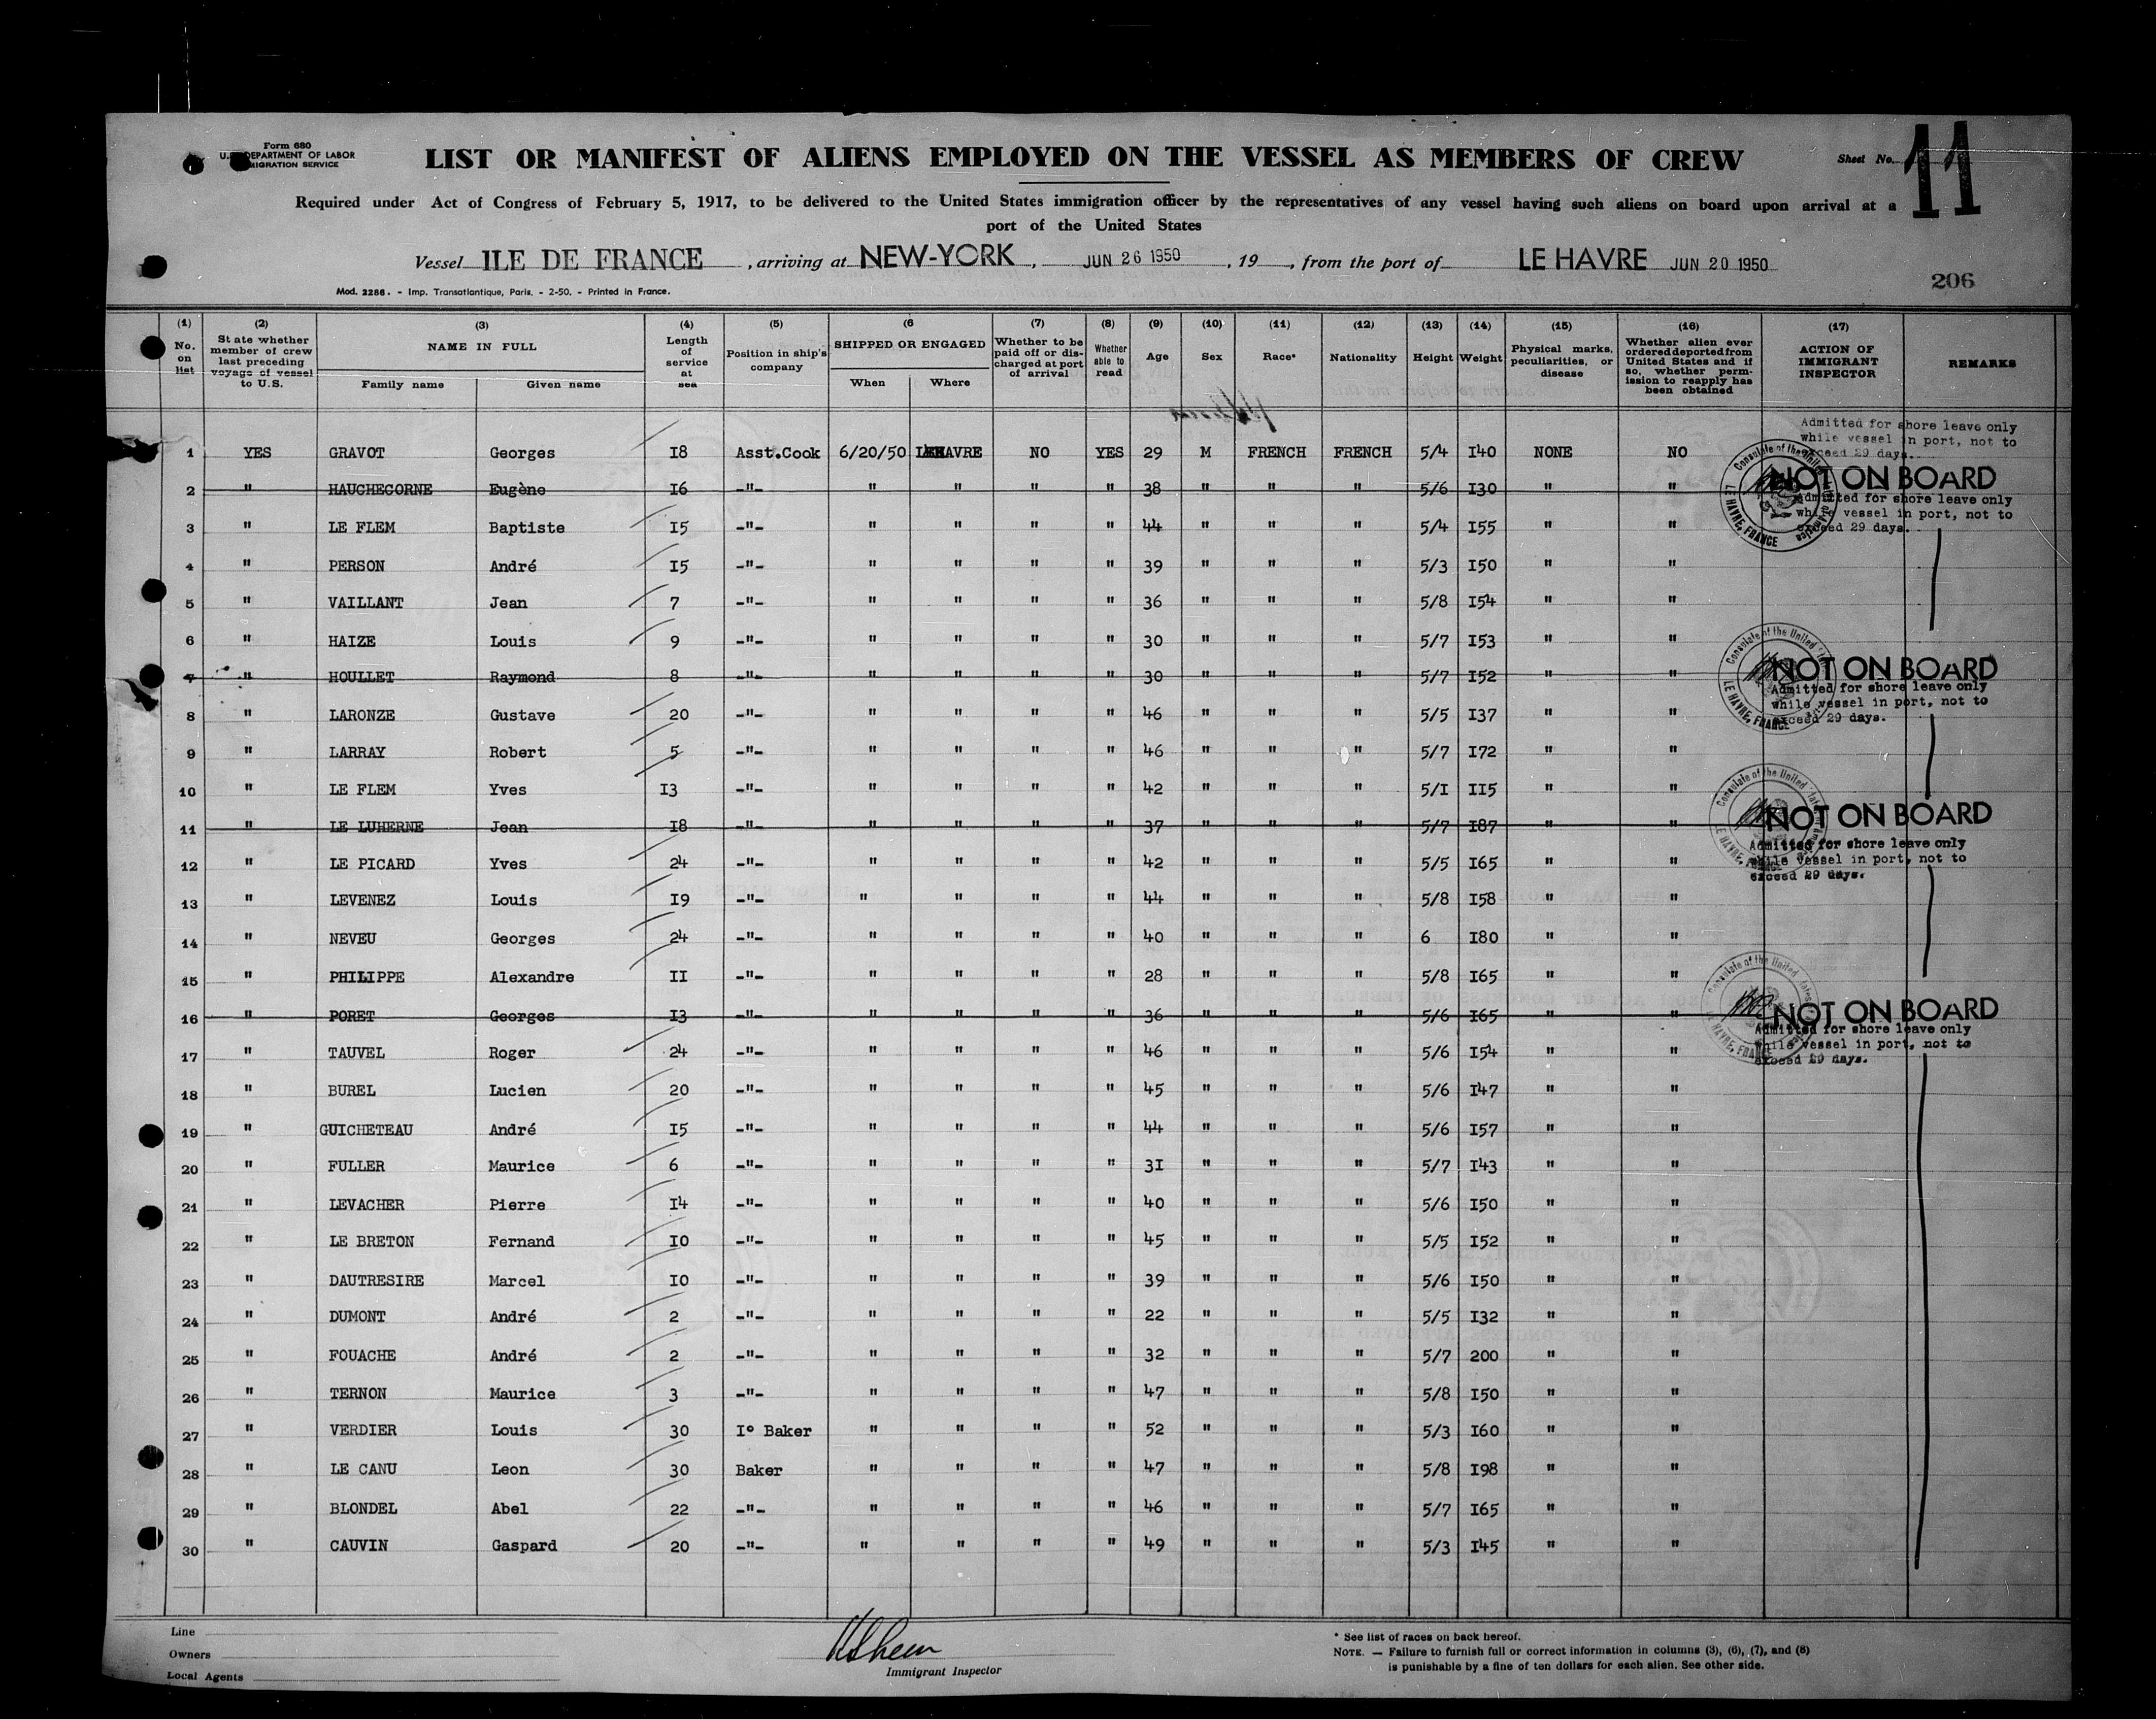 Form 680
U. S. DEPARTMENT OF LABOR
IMMIGRATION SERVICE
LIST OR MANIFEST OF ALIENS EMPLOYED ON THE VESSEL AS MEMBERS OF CREW
Sheet No. 11
Required under Act of Congress of February 5, 1917, to be delivered to the United States immigration officer by the representatives of any vessel having such aliens on board upon arrival at a
port of the United States
Vessel ILE DE FRANCE, arriving at NEW-YORK, JUN 26 1950, 19 , from the port of LE HAVRE JUN 20 1950
206
Mod. 2286. - Imp. Transatlantique, Paris. - 2-50. - Printed in France.
(1) No. on list (2) State whether member of crew last preceding voyage of vessel to U.S. (3) NAME IN FULL Family name Given name (4) Length of service at sea (5) Position in ship's company (6 SHIPPED OR ENGAGED When Where (7) Whether to be paid off or discharged at port of arrival (8) Whether able to read (9) Age (10) Sex (11) Race* (12) Nationality (13) Height (14) Weight (15) Physical marks, peculiarities, or disease (16) Whether alien ever ordered deported from United States and if so, whether permission to reapply has been obtained (17) ACTION OF IMMIGRANT INSPECTOR REMARKS
Admitted for shore leave only
while vessel in port, not to
exceed 29 days.
1 YES GRAVOT Georges 18 Asst.Cook 6/20/50 LE HAVRE NO YES 29 M FRENCH FRENCH 5/4 I40 NONE NO
2 " HAUCHECORNE Eugène I6 -"- " " " " 38 " " " 5/6 I30 " " NOT ON BOARD
Admitted for shore leave only
while vessel in port, not to
exceed 29 days.
3 " LE FLEM Baptiste I5 -"- " " " " 44 " " " 5/4 I55 " "
4 " PERSON André I5 -"- " " " " 39 " " " 5/3 I50 " "
5 " VAILLANT Jean 7 -"- " " " " 36 " " " 5/8 I54 " "
6 " HAIZE Louis 9 -"- " " " " 30 " " " 5/7 I53 " "
7 " HOULLET Raymond 8 -"- " " " " 30 " " " 5/7 I52 " " NOT ON BOARD
Admitted for shore leave only
while vessel in port, not to
exceed 29 days.
8 " LARONZE Gustave 20 -"- " " " " 46 " " " 5/5 I37 " "
9 " LARRAY Robert 5 -"- " " " " 46 " " " 5/7 I72 " "
10 " LE FLEM Yves I3 -"- " " " " 42 " " " 5/I II5 " "
11 " LE LUHERNE Jean I8 -"- " " " " 37 " " " 5/7 I87 " " NOT ON BOARD
Admitted for shore leave only
while vessel in port, not to
exceed 29 days.
12 " LE PICARD Yves 24 -"- " " " " 42 " " " 5/5 I65 " "
13 " LEVENEZ Louis I9 -"- " " " " 44 " " " 5/8 I58 " "
14 " NEVEU Georges 24 -"- " " " " 40 " " " 6 I80 " "
15 " PHILIPPE Alexandre II -"- " " " " 28 " " " 5/8 I65 " "
16 " PORET Georges I3 -"- " " " " 36 " " " 5/6 I65 " " NOT ON BOARD
Admitted for shore leave only
while vessel in port, not to
exceed 29 days.
17 " TAUVEL Roger 24 -"- " " " " 46 " " " 5/6 I54 " "
18 " BUREL Lucien 20 -"- " " " " 45 " " " 5/6 I47 " "
19 " GUICHETEAU André I5 -"- " " " " 44 " " " 5/6 I57 " "
20 " FULLER Maurice 6 -"- " " " " 3I " " " 5/7 I43 " "
21 " LEVACHER Pierre I4 -"- " " " " 40 " " " 5/6 I50 " "
22 " LE BRETON Fernand I0 -"- " " " " 45 " " " 5/5 I52 " "
23 " DAUTRESIRE Marcel I0 -"- " " " " 39 " " " 5/6 I50 " "
24 " DUMONT André 2 -"- " " " " 22 " " " 5/5 I32 " "
25 " FOUACHE André 2 -"- " " " " 32 " " " 5/7 200 " "
26 " TERNON Maurice 3 -"- " " " " 47 " " " 5/8 I50 " "
27 " VERDIER Louis 30 I° Baker " " " " 52 " " " 5/3 I60 " "
28 " LE CANU Leon 30 Baker " " " " 47 " " " 5/8 I98 " "
29 " BLONDEL Abel 22 -"- " " " " 46 " " " 5/7 I65 " "
30 " CAUVIN Gaspard 20 -"- " " " " 49 " " " 5/3 I45 " "
Consulate of the United States of America
LE HAVRE, FRANCE
Consulate of the United States of America
LE HAVRE, FRANCE
Consulate of the United States of America
LE HAVRE, FRANCE
Consulate of the United States of America
LE HAVRE, FRANCE
Line
Owners
Local Agents
Immigrant Inspector
* See list of races on back hereof.
NOTE. — Failure to furnish full or correct information in columns (3), (6), (7), and (8)
is punishable by a fine of ten dollars for each alien. See other side.